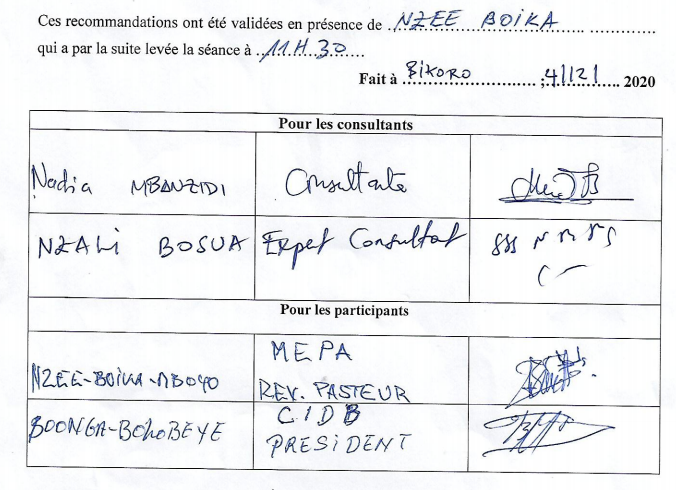 Ces recommandations ont été validées en présence de ..NZEE BOIKA.............. ................
qui a par la suite levée la séance à ..11.H.30....
Fait à ..BIKORO..................... ;4/12/........ 2020
Pour les consultants
Nadia MBANZIDI Consultante
NZALI BOSUA Expet Consultat
Pour les participants
MEPA
NZEE-BOIKA-MBOYO REV. PASTEUR
BOONGA-BOLOBEYE CIDB
PRESIDENT